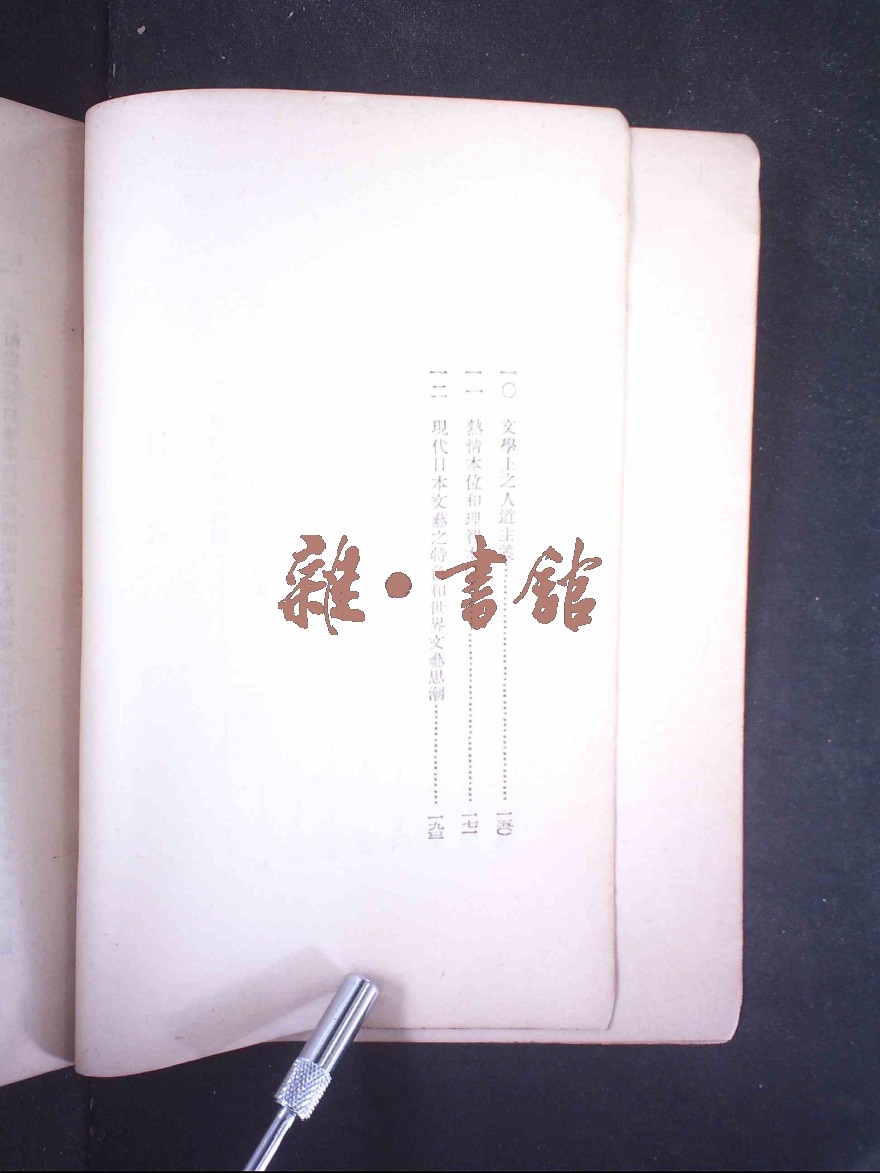 一〇　文學上之人道主義……………………一五〇
一一　熱情本位和理智……………………一七一
一二　現代日本文藝之特色和世界文藝思潮…………一九三
雜·書館